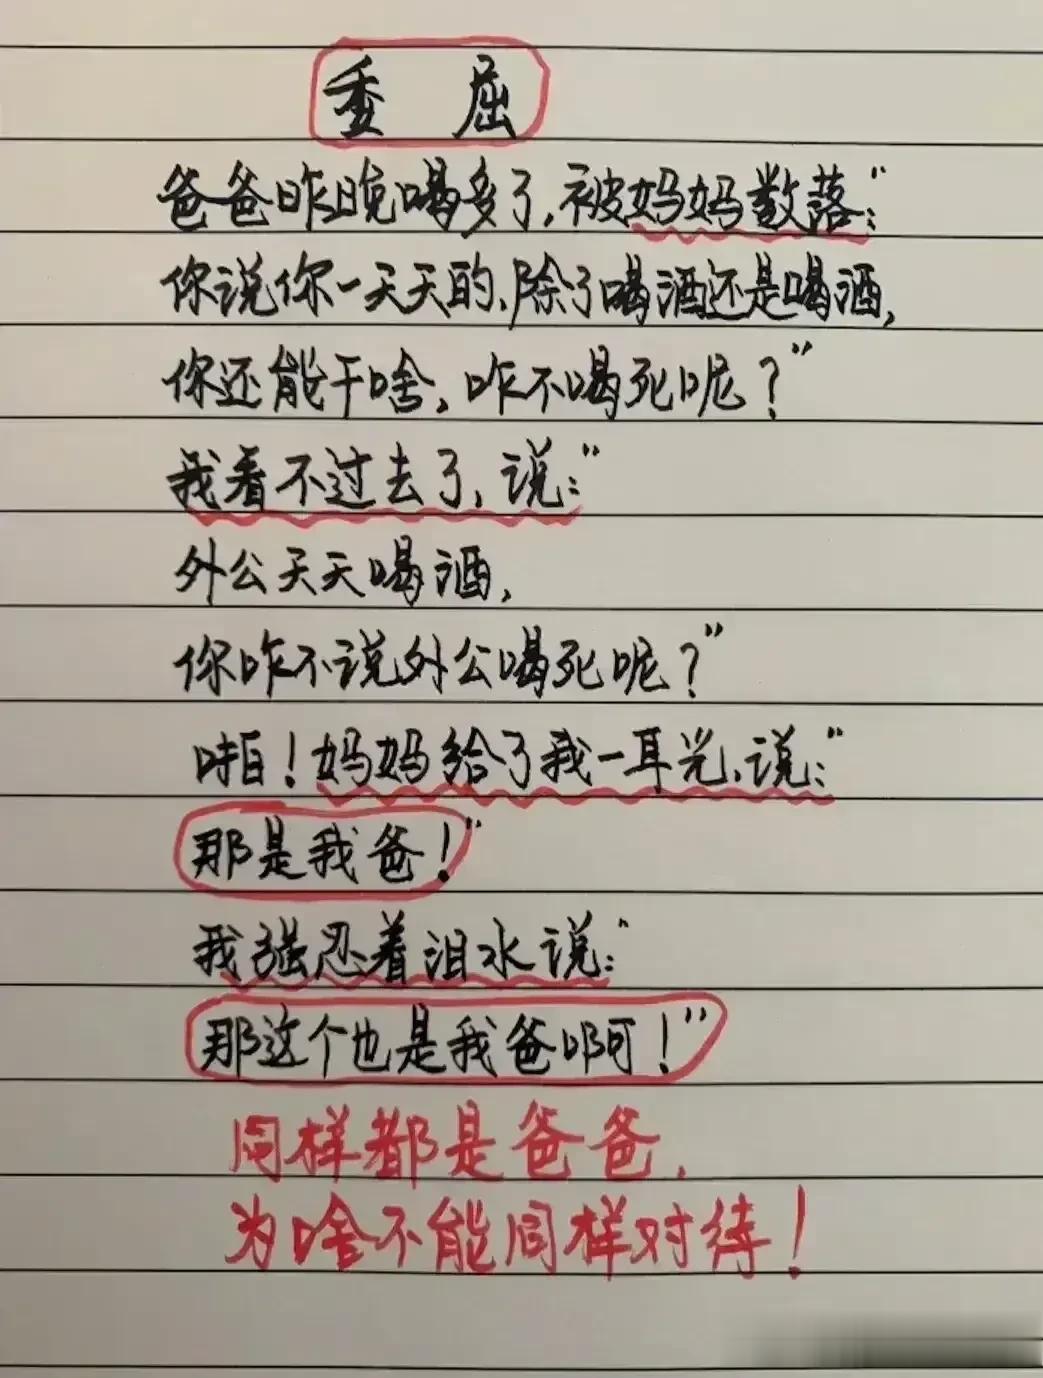 委屈
爸爸昨晚喝多了,被妈妈数落:“
你说你一天天的,除了喝酒还是喝酒,
你还能干啥,咋不喝死呢?”
我看不过去了,说:“
外公天天喝酒,
你咋不说外公喝死呢?”
啪!妈妈给了我一耳光,说:“
那是我爸!”
我强忍着泪水说:“
那这个也是我爸啊!”
同样都是爸爸,
为啥不能同样对待!